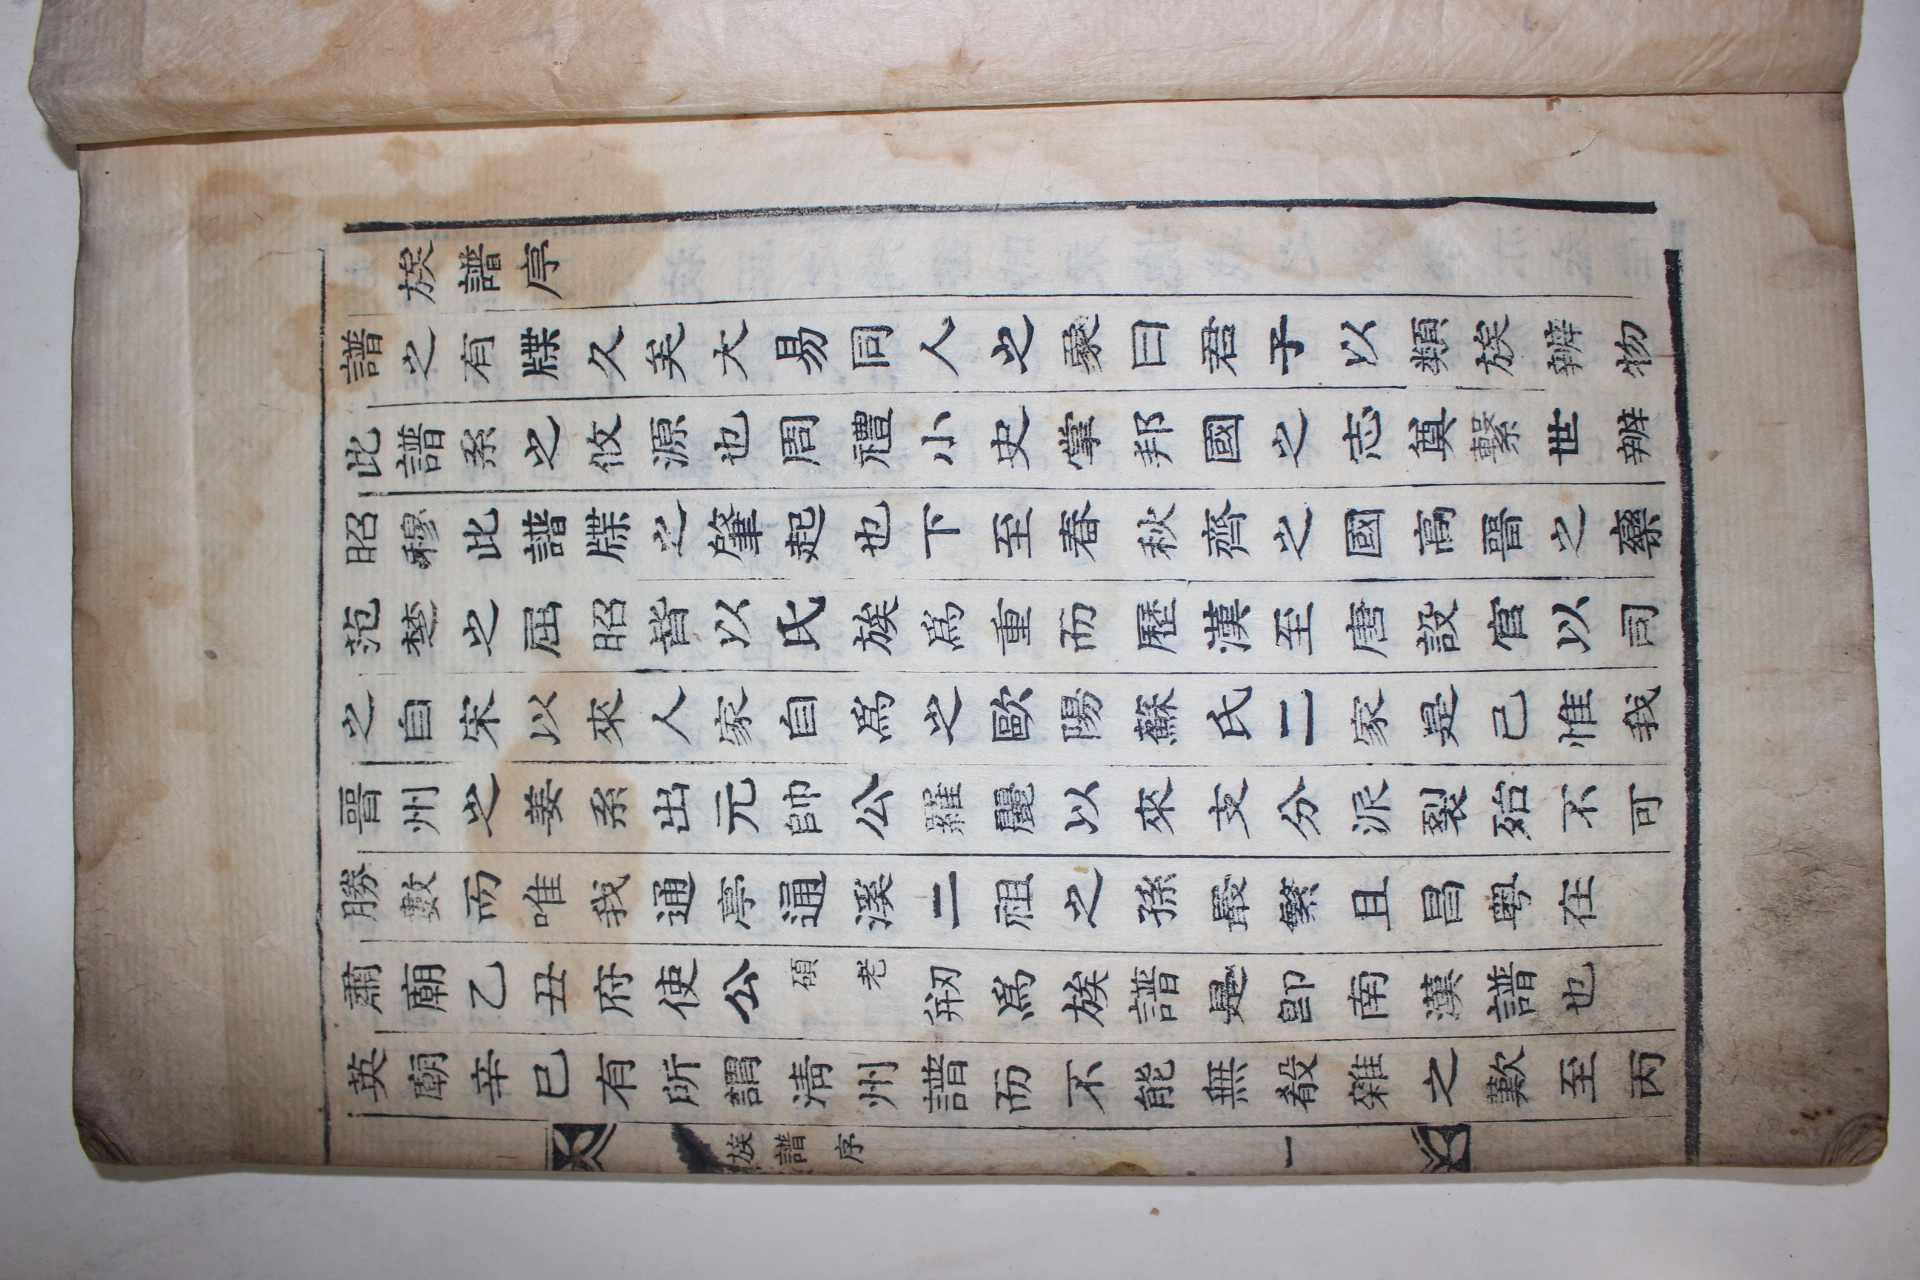 族譜序
譜之有牒久矣大易同人之象曰君子以類族辨物
此譜系之攸源也周禮小史掌邦國之志奠繫世辨
昭穆此譜牒之肇起也下至春秋齊之國高晋之欒
范楚之屈昭皆以氏族爲重而歷漢至唐設官以司
之自宋以來人家自爲之歐陽蘇氏二家是已惟我
晋州之姜系出元帥公羅麗以來支分派裂殆不可
勝數而唯我通亭通溪二祖之孫最繁且昌粤在
肅廟乙丑府使公碩老刱爲族譜是卽南漢譜也至
英廟辛巳有所謂淸州譜而不能無殽雜之歎至丙
族譜序 一